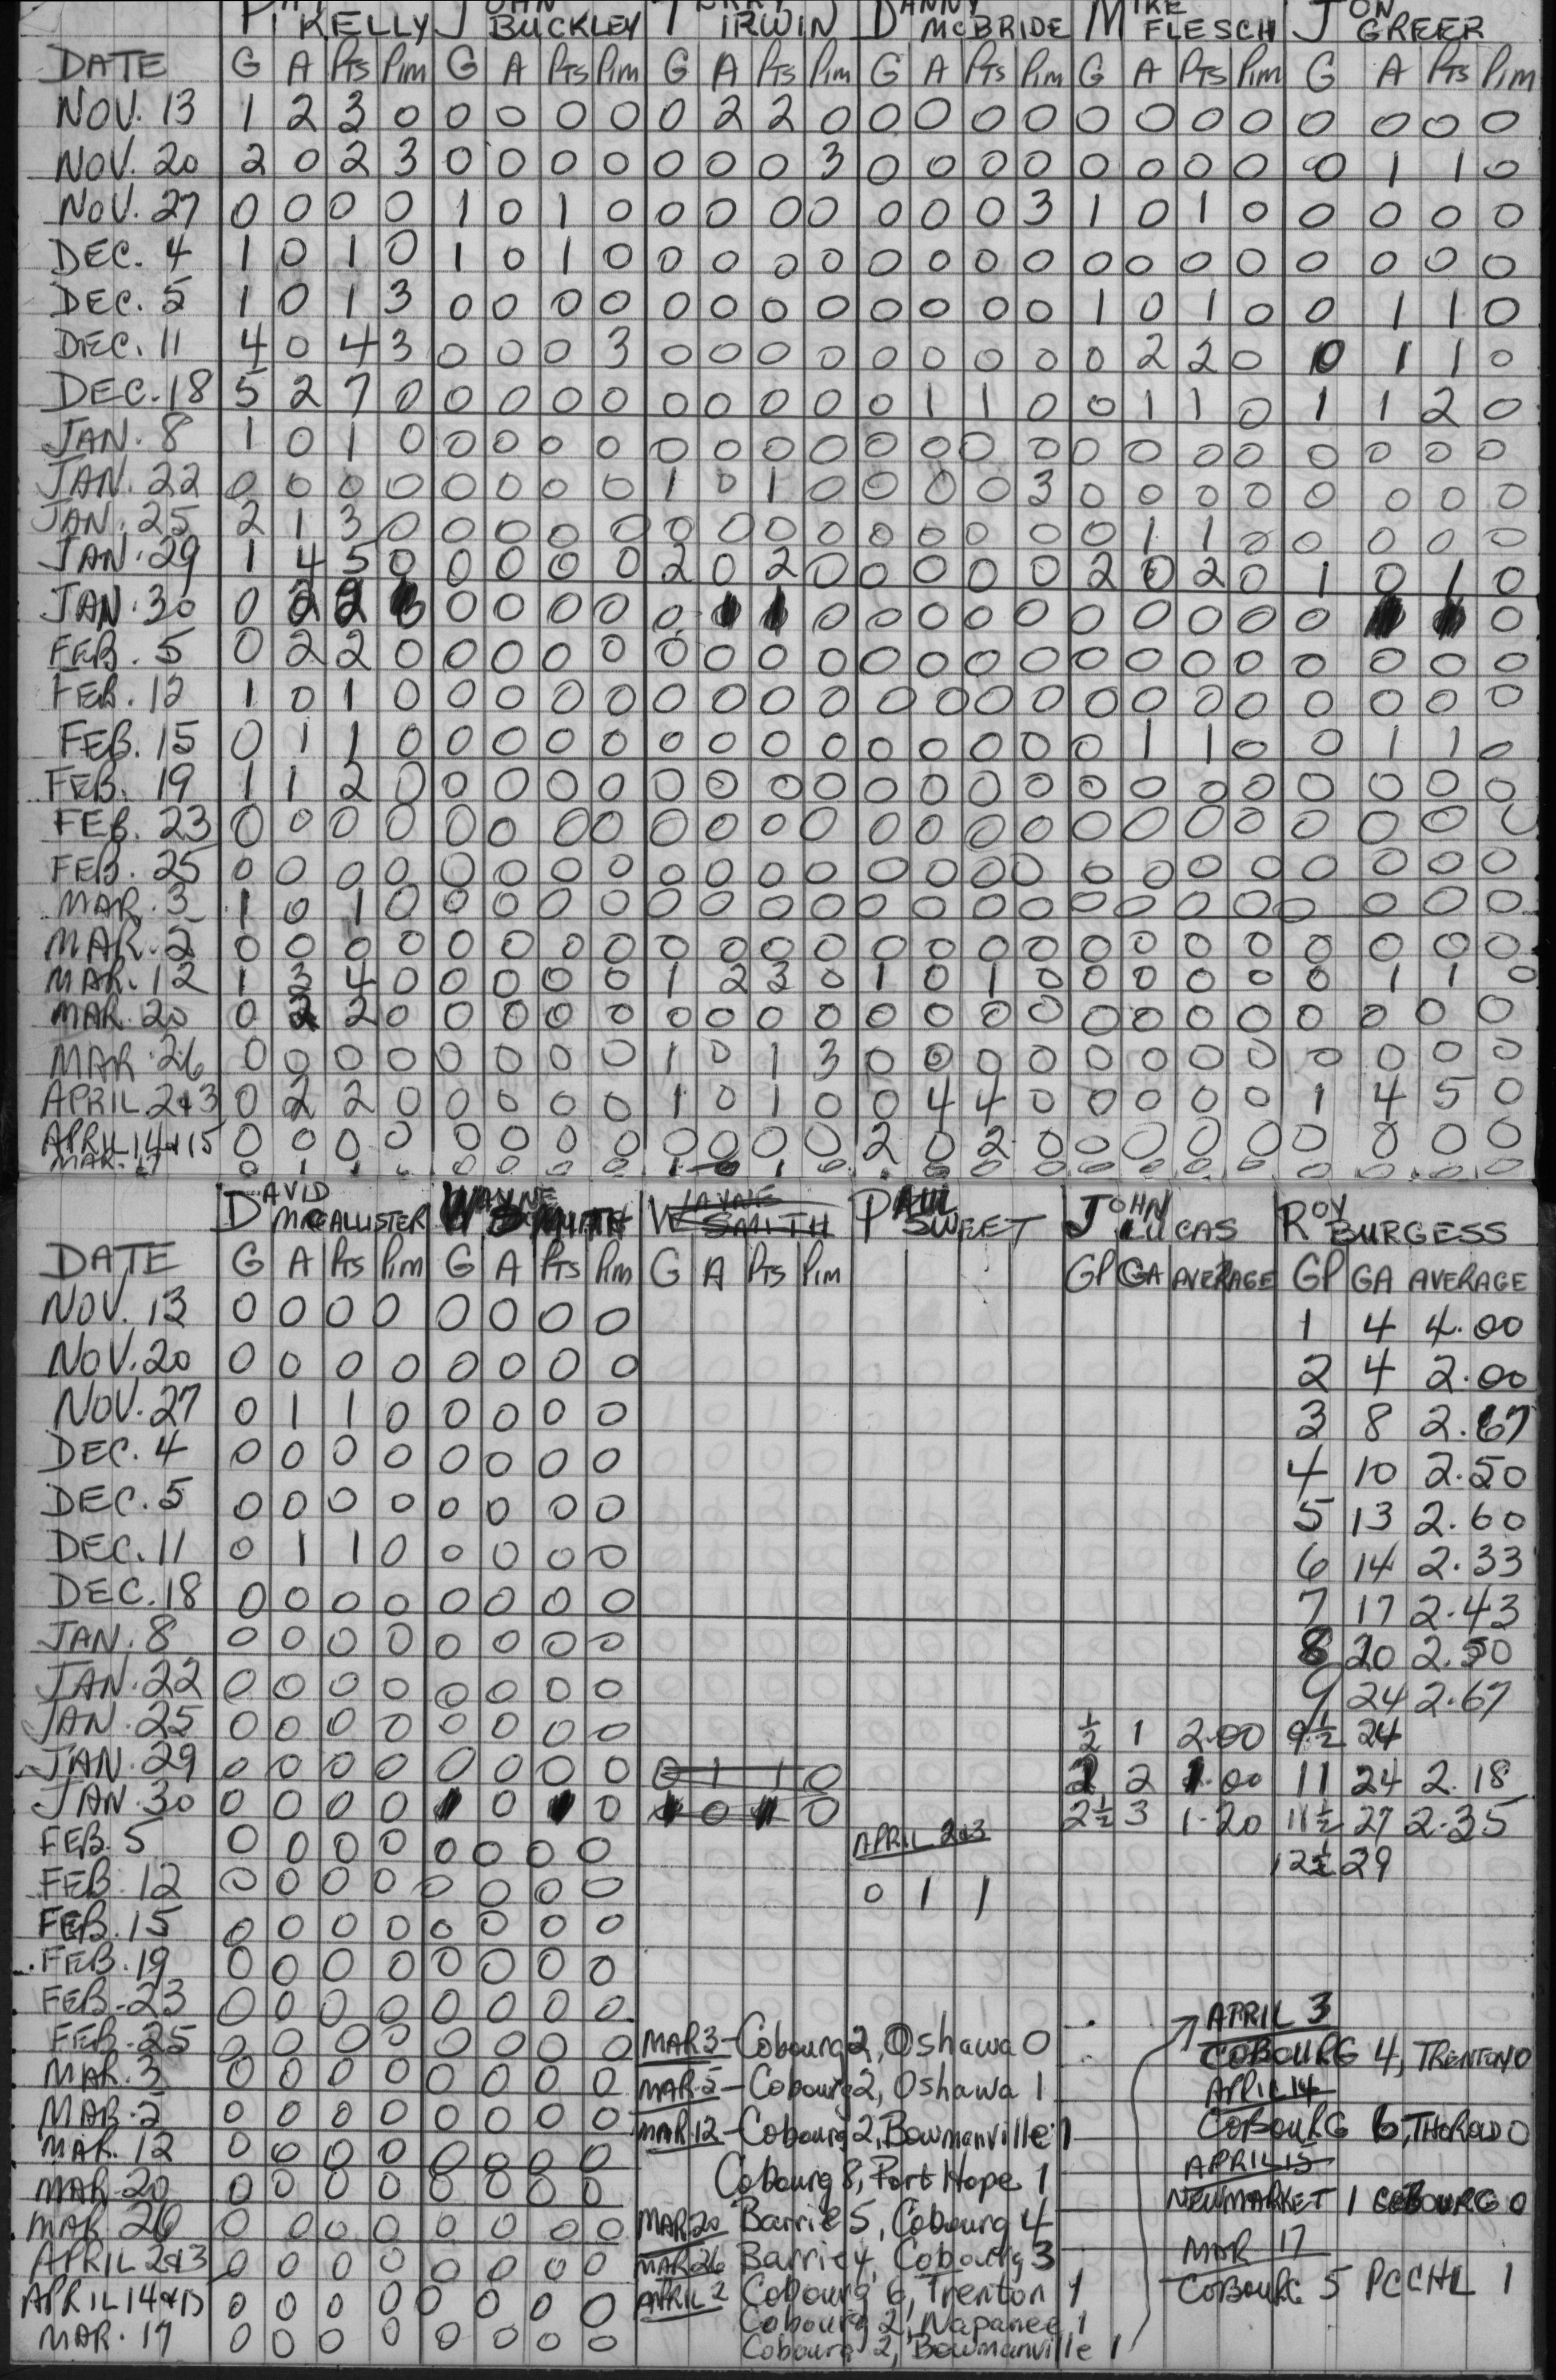 PAT KELLY JOHN BUCKLEY TERRY IRWIN DANNY McBRIDE MIKE FLESCH JON GREER
DATE G A PTS PIM G A PTS PIM G A PTS PIM G A PTS PIM G A PTS PIM G A PTS PIM
NOV. 13 1 2 3 0 0 0 0 0 0 2 2 0 0 0 0 0 0 0 0 0 0 0 0 0
NOV. 20 2 0 2 3 0 0 0 0 0 0 0 3 0 0 0 0 0 0 0 0 0 1 1 0
NOV. 27 0 0 0 0 1 0 1 0 0 0 0 0 0 0 0 3 1 0 1 0 0 0 0 0
DEC. 4 1 0 1 0 1 0 1 0 0 0 0 0 0 0 0 0 0 0 0 0 0 0 0 0
DEC. 5 1 0 1 3 0 0 0 0 0 0 0 0 0 0 0 0 1 0 1 0 0 1 1 0
DEC. 11 4 0 4 3 0 0 0 3 0 0 0 0 0 0 0 0 0 2 2 0 0 1 1 0
DEC. 18 5 2 7 0 0 0 0 0 0 0 0 0 0 1 1 0 0 1 1 0 1 1 2 0
JAN. 8 1 0 1 0 0 0 0 0 0 0 0 0 0 0 0 0 0 0 0 0 0 0 0 0
JAN. 22 0 0 0 0 0 0 0 0 1 0 1 0 0 0 0 3 0 0 0 0 0 0 0 0
JAN. 25 2 1 3 0 0 0 0 0 0 0 0 0 0 0 0 0 0 1 1 0 0 0 0 0
JAN. 29 1 4 5 0 0 0 0 0 2 0 2 0 0 0 0 0 2 0 2 0 1 0 1 0
JAN. 30 0 2 2 0 0 0 0 0 1 1 0 0 0 0 0 0 0 0 0 0 0
FEB. 5 0 2 2 0 0 0 0 0 0 0 0 0 0 0 0 0 0 0 0 0 0 0 0 0
FEB. 12 1 0 1 0 0 0 0 0 0 0 0 0 0 0 0 0 0 0 0 0 0 0 0 0
FEB. 15 0 1 1 0 0 0 0 0 0 0 0 0 0 0 0 0 0 1 1 0 0 1 1 0
FEB. 19 1 1 2 0 0 0 0 0 0 0 0 0 0 0 0 0 0 0 0 0 0 0 0 0
FEB. 23 0 0 0 0 0 0 0 0 0 0 0 0 0 0 0 0 0 0 0 0 0 0 0 0
FEB. 25 0 0 0 0 0 0 0 0 0 0 0 0 0 0 0 0 0 0 0 0 0 0 0 0
MAR. 3 1 0 1 0 0 0 0 0 0 0 0 0 0 0 0 0 0 0 0 0 0 0 0 0
MAR. 5 0 0 0 0 0 0 0 0 0 0 0 0 0 0 0 0 0 0 0 0 0 0 0 0
MAR. 12 1 3 4 0 0 0 0 0 1 2 3 0 1 0 1 0 0 0 0 0 0 1 1 0
MAR. 20 0 2 2 0 0 0 0 0 0 0 0 0 0 0 0 0 0 0 0 0 0 0 0 0
MAR. 26 0 0 0 0 0 0 0 0 1 0 1 3 0 0 0 0 0 0 0 0 0 0 0 0
APRIL 2&3 0 2 2 0 0 0 0 0 1 0 1 0 0 4 4 0 0 0 0 0 1 4 5 0
APRIL 14&15 0 0 0 0 0 0 0 0 0 0 0 0 2 0 2 0 0 0 0 0 0 0 0 0
MAR. 17 0 1 1 0 0 0 0 0 1 0 1 0 0 0 0 0 0 0 0 0 0 0 0 0
DAVID McCALLISTER WAYNE SMITH WAYNE SMITH PAUL SWEET JOHN LUCAS ROY BURGESS
DATE G A PTS PIM G A PTS PIM G A PTS PIM GP GA AVERAGE GP GA AVERAGE
NOV. 13 0 0 0 0 0 0 0 0 1 4 4.00
NOV. 20 0 0 0 0 0 0 0 0 2 4 2.00
NOV. 27 0 1 1 0 0 0 0 0 3 8 2.67
DEC. 4 0 0 0 0 0 0 0 0 4 10 2.50
DEC. 5 0 0 0 0 0 0 0 0 5 13 2.60
DEC. 11 0 1 1 0 0 0 0 0 6 14 2.33
DEC. 18 0 0 0 0 0 0 0 0 7 17 2.43
JAN. 8 0 0 0 0 0 0 0 0 8 20 2.50
JAN. 22 0 0 0 0 0 0 0 0 9 24 2.67
JAN. 25 0 0 0 0 0 0 0 0 ½ 1 2.00 9½ 24
JAN. 29 0 0 0 0 0 0 0 0 0 1 1 0 2 2 1.00 11 24 2.18
JAN. 30 0 0 0 0 0 0 0 0 2½ 3 1.20 11½ 27 2.35
FEB. 5 0 0 0 0 0 0 0 0 APRIL 2&3 12½ 29
FEB. 12 0 0 0 0 0 0 0 0 0 1 1
FEB. 15 0 0 0 0 0 0 0 0
FEB. 19 0 0 0 0 0 0 0 0
FEB. 23 0 0 0 0 0 0 0 0 APRIL 3
FEB. 25 0 0 0 0 0 0 0 0 MAR 3 - Cobourg 2, Oshawa 0 COBOURG 4, TRENTON 0
MAR. 3 0 0 0 0 0 0 0 0 MAR 5 - Cobourg 2, Oshawa 1 APRIL 14
MAR. 5 0 0 0 0 0 0 0 0 MAR. 12 - Cobourg 2, Bowmanville 1 COBOURG 6, THOROLD 0
MAR. 12 0 0 0 0 0 0 0 0 Cobourg 8, Port Hope 1 APRIL 15
MAR. 20 0 0 0 0 0 0 0 0 NEWMARKET 1 COBOURG 0
MAR 26 0 0 0 0 0 0 0 0 MAR 20 Barrie 5, Cobourg 4
APRIL 2&3 0 0 0 0 0 0 0 0 MAR 26 Barrie 4, Cobourg 3 MAR 17
APRIL 14&15 0 0 0 0 0 0 0 0 APRIL 2 Cobourg 6, Trenton 1 COBOURG 5 PCCHL 1
Cobourg 2, Napanee 1
MAR. 17 0 0 0 0 0 0 0 0 Cobourg 2, Bowmanville 1